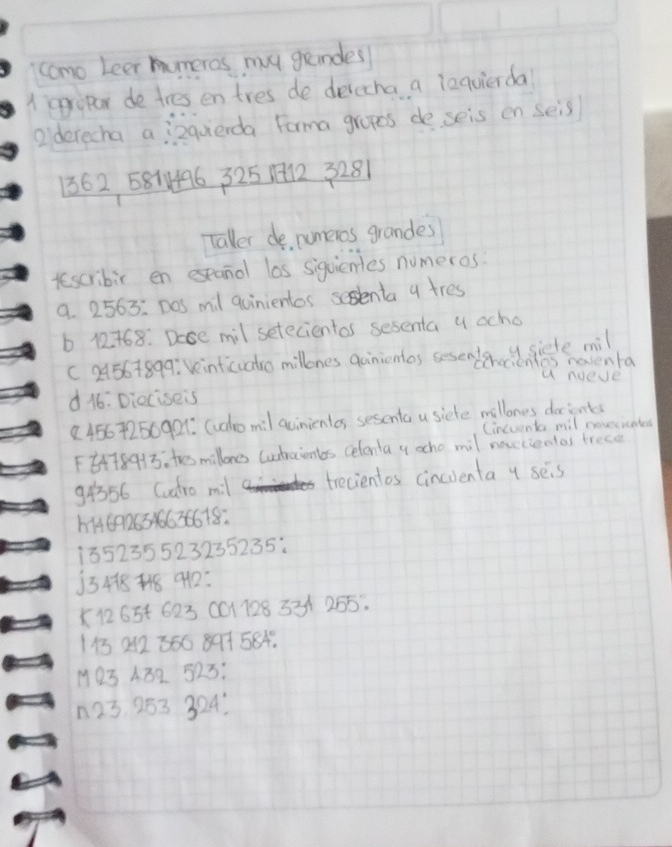 Como Leer numeros muy grandes
1 agrupar de tres en tres de derecha a izquierda
2 derecha a izquierda Forma grupos de seis en seis
362, 581 496, 325 712, 328
Taller de numeros grandes
escribir en español los siguientes numeros:
a. 2563: Dos mil quinientos sesenta y tres
b 12768: Doce mil setecientos sesenta y ocho
c 24567899: Veinticuatro millones quinientos sesenta y siete mil
ochocientos noventa
y nueve
d 16: Dieciseis
e 4567250921: Cuatro mil quinientos sesenta y siete millones docientos
Cincuenta mil novecientos
F 3478913: tres millones cuatrocientos cetenta y ocho mil novecientos trece
g 4356 Cuatro mil trecientos cincuenta y seis
h
i 35235523235235:
j 3478 718 912:
K 12 654 623 001 128 334 255:
l 13 212 366 897 584:
M 23 432 523:
n 23 253 324: